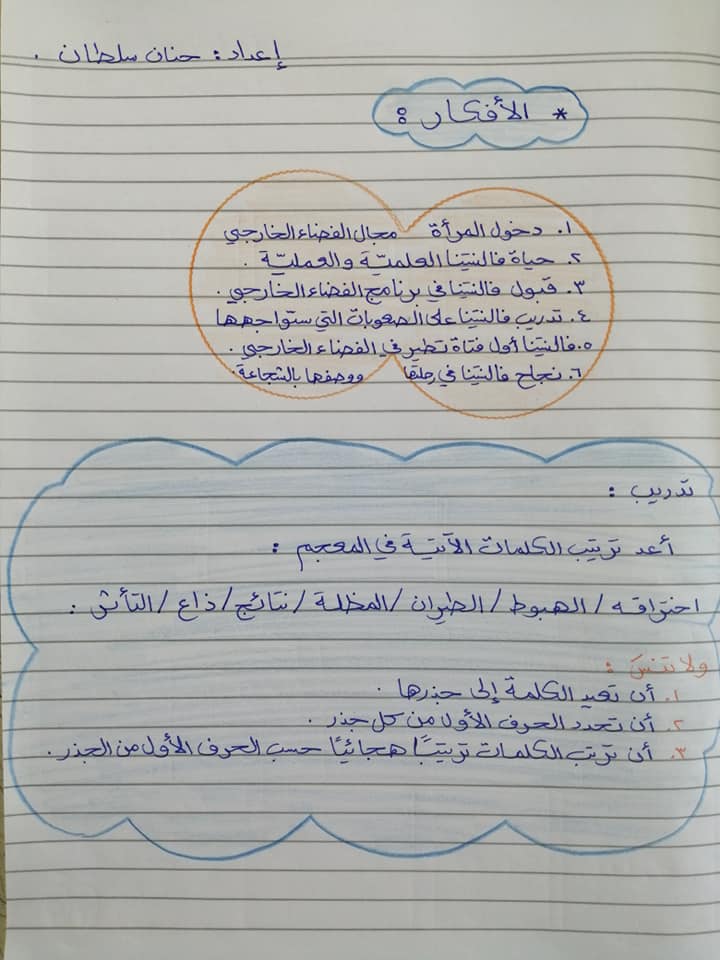 إعداد: حنان سلطان .
* الأفكار :
١. دخول المرأة مجال الفضاء الخارجي
٢. حياة فالنتينا العلميّة والعمليّة .
٣. قبول فالنتينا في برنامج الفضاء الخارجي .
٤. تدريب فالنتينا على الصعوبات التي ستواجهها
٥. فالنتينا أول فتاة تطير في الفضاء الخارجي .
٦. نجاح فالنتينا في رحلتها ووصفها بالشجاعة .
تدريب :
أعد ترتيب الكلمات الآتية في المعجم :
احتراقه / الهبوط / الطيران / المظلة / نتائج / ذاع / التأثر :
ولا تنسَ :
١. أن تعيد الكلمة إلى جذرها .
٢. أن تحدد الحرف الأول من كل جذر .
٣. أن ترتب الكلمات ترتيبًا هجائيًا حسب الحرف الأول من الجذر .